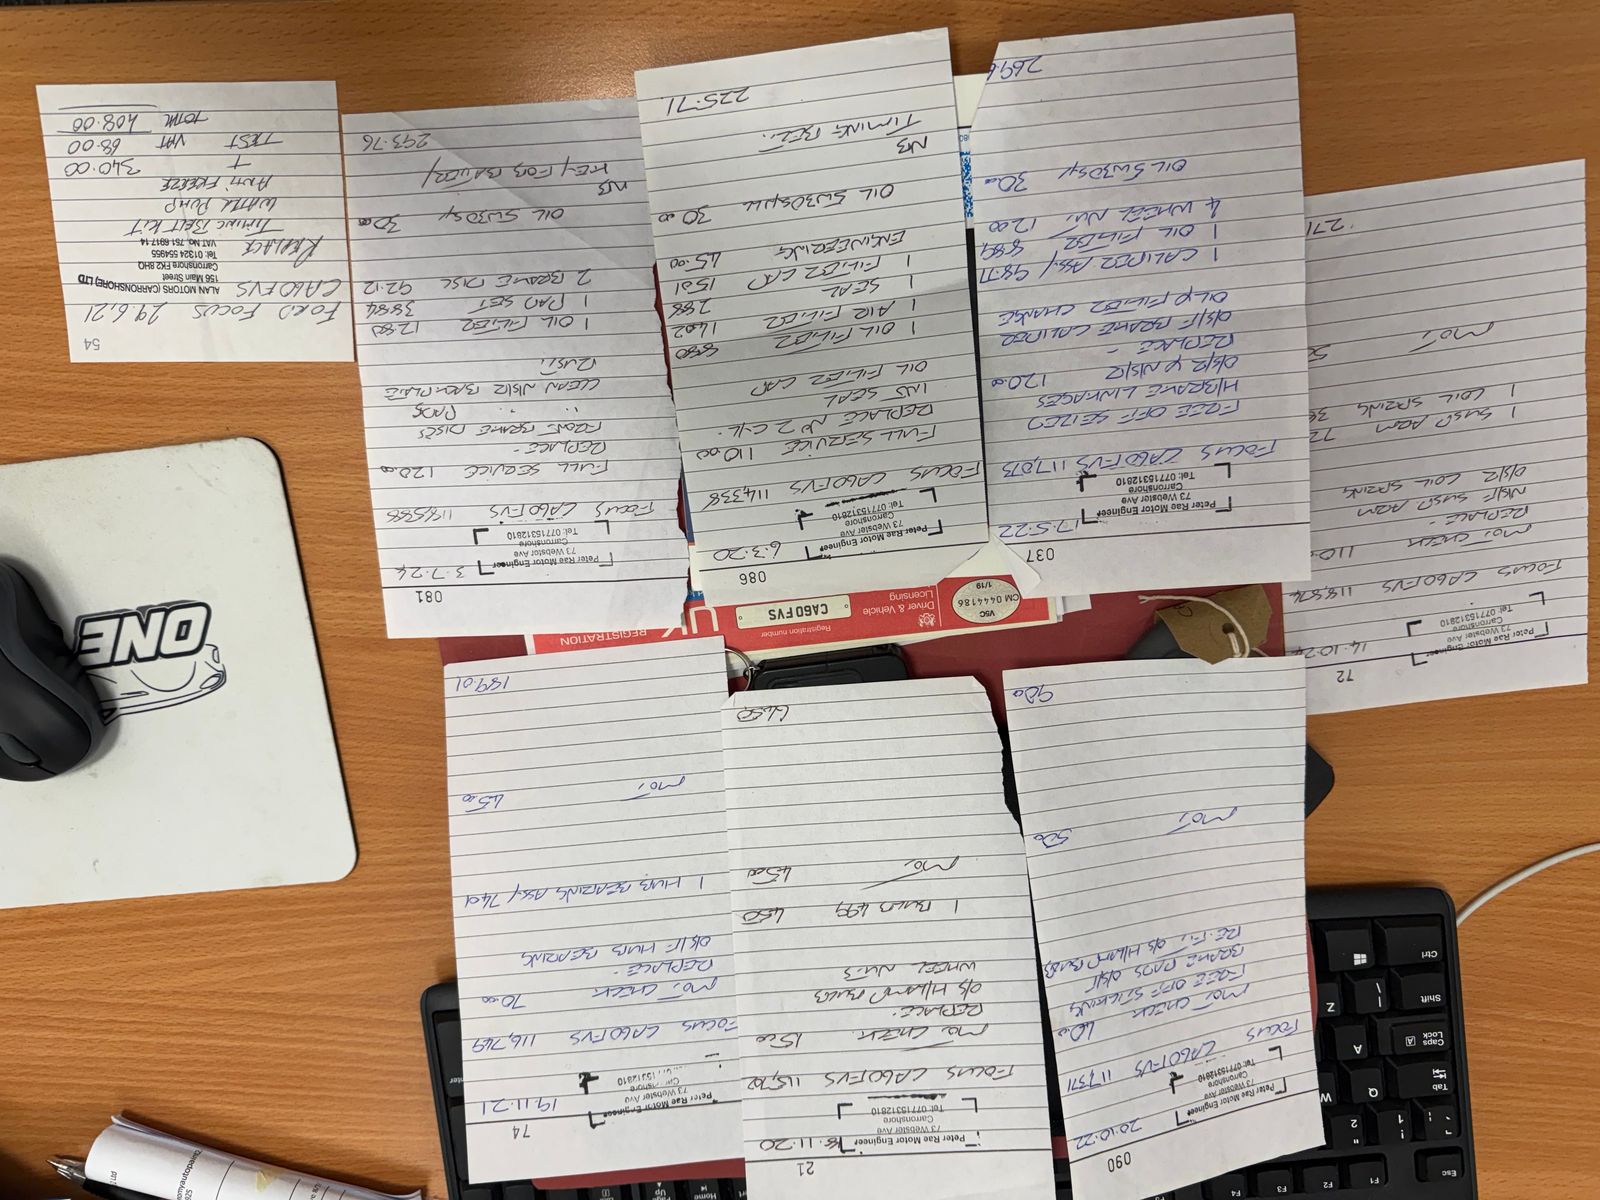 54
FORD FOCUS 29.6.21
CA60FVS
ALAN MOTORS (CARRONSHORE) LTD
156 Main Street
Carronshore FK2 8HQ
Tel: 01324 554955
VAT No. 751 6917 14
REPLACE
TIMING BELT KIT
WATER PUMP
ANTI FREEZE
340.00
TEST VAT 68.00
TOTAL 408.00
081
3.7.24
Peter Rae Motor Engineer
73 Webster Ave
Carronshore
Tel: 07715312810
FOCUS CA60FVS
FULL SERVICE 120.00
REPLACE -
FRONT BRAKE DISCS
" " PADS
CLEAN N/S/R BACKPLATE
RUST.
1 OIL FILTER 12.80
1 PAD SET 38.84
2 BRAKE DISC 92.12
OIL 5W30 5L 30.00
NB
KEY FOB BATTERY
293.76
086
6.3.20
Peter Rae Motor Engineer
73 Webster Ave
Carronshore
Tel: 07715312810
FOCUS CA60FVS 114,338
FULL SERVICE 110.00
REPLACE NO 2 CYL.
INJ SEAL
OIL FILTER CAP
1 OIL FILTER 8.80
1 AIR FILTER 14.02
1 SEAL 2.88
1 FILTER CAP 15.01
ENGINEERING 45.00
OIL 5W30 30.00
NB
TIMING BELT.
225.71
037
17.5.22
Peter Rae Motor Engineer
73 Webster Ave
Carronshore
Tel: 07715312810
FOCUS CA60FVS 117,073
FREE OFF SEIZED
H/BRAKE LINKAGES
O/S/R & N/S/R 120.00
REPLACE -
O/S/F BRAKE CALIPER
OIL & FILTER CHANGE
1 CALIPER ASSY 98.71
1 OIL FILTER 8.89
4 WHEEL NUT 12.00
OIL 5W30 5L 30.00
269.6
72
14.10.24
Peter Rae Motor Engineer
73 Webster Ave
Carronshore
Tel: 07715312810
FOCUS CA60FVS 118,874
MOT CHECK 110.
REPLACE -
N/S/F SUSP ARM
O/S/R COIL SPRING
1 SUSP ARM 72
1 COIL SPRING
MOT
271
UK
REGISTRATION
Driver & Vehicle
Licensing
Registration number
CA60FVS
V5C
CM 0444186
1/19
74
19.11.21
Peter Rae Motor Engineer
73 Webster Ave
Tel: 07715312810
FOCUS CA60FVS 116,749
MOT CHECK 70.00
REPLACE -
O/S/F HUB BEARING
1 HUB BEARING ASSY 74.01
MOT 45.00
189.01
21
11.20
Peter Rae Motor Engineer
73 Webster Ave
Carronshore
Tel: 07715312810
FOCUS CA60FVS
MOT CHECK. 15.00
REPLACE.
O/S H/LAMP BULB
WHEEL NUTS
1 BULB 499 4.50
MOT 45.00
64.50
090
20.10.22
Peter Rae Motor Engineer
73 Webster Ave
Carronshore
Tel: 07715312810
FOCUS CA60FVS 117371
MOT CHECK 40.00
FREE OFF STICKING
BRAKE PADS O/S/F
RE-FIT O/S H/LAMP BULBS
MOT 50.00
90.00
ONE
Ctrl
Shift
Caps Lock
Tab
Esc
Z
A
Q
W
1
2
F1
F2
F3
F4
Enter
Page Up
Home